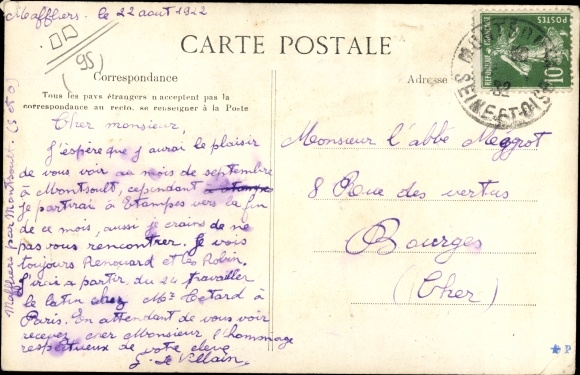 Maffliers. le 22 aout 1922
(95)
CARTE POSTALE
Correspondance
Adresse
Tous les pays étrangers n'acceptent pas la
correspondance au recto. se renseigner à la Poste
Cher monsieur,
J'espère que j'aurai le plaisir
de vous voir au mois de septembre
à Montsoult, cependant
je partirai à Etampes vers la fin
de ce mois, aussi je crains de ne
pas vous rencontrer. Je vois
toujours Renouard et les Robin.
J'irai a partir du 24 travailler
le latin chez Mr Tetard à
Paris. En attendant de vous voir
recevez cher Monsieur l'hommage
respectueux de votre eleve
G. de Villain.
Maffliers par Montsoult. (S et O)
Monsieur l'abbé Megrot
8 Rue des vertus
Bourges
(Cher)
POSTES
REPUBLIQUE FRANÇAISE
10
SEINE-ET-OISE
22